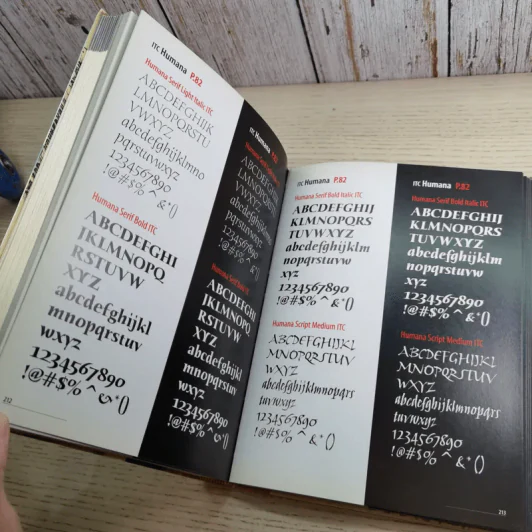 ITC Humana P.82
Humana Serif Light Italic ITC
ABCDEFGHIJK
LMNOPQRSTU
VWXYZ
abcdefghijklmno
pqrstuvwxyz
1234567890
!@#$%^&*()
Humana Serif Bold ITC
ABCDEFGHI
JKLMNOPQ
RSTUVW
XYZ
abcdefghijkl
mnopqrstuv
wxyz
1234567890
!@#$%^&*()
212
ITC Humana P.82
Humana Serif Light Italic ITC
ABCDEFGHIJK
LMNOPQRSTU
VWXYZ
abcdefghijklmno
pqrstuvwxyz
1234567890
!@#$%^&*()
Humana Serif Bold ITC
ABCDEFGHI
JKLMNOPQ
RSTUVW
XYZ
abcdefghijkl
mnopqrstuv
wxyz
1234567890
!@#$%^&*()
ITC Humana P.82
Humana Serif Bold Italic ITC
ABCDEFGHIJ
KLMNOPQRS
TUVWXYZ
abcdefghijklm
nopqrstuvw
xyz
1234567890
!@#$%^&*()
Humana Script Medium ITC
ABCDEFGHIJKL
MNOPQRSTUV
WXYZ
abcdefghijklmnopqrs
tuvwxyz
1234567890
!@#$%^&*()
ITC Humana P.82
Humana Serif Bold Italic ITC
ABCDEFGHIJ
KLMNOPQRS
TUVWXYZ
abcdefghijklm
nopqrstuvw
xyz
1234567890
!@#$%^&*()
Humana Script Medium ITC
ABCDEFGHIJKL
MNOPQRSTUV
WXYZ
abcdefghijklmnopqrs
tuvwxyz
1234567890
!@#$%^&*()
213